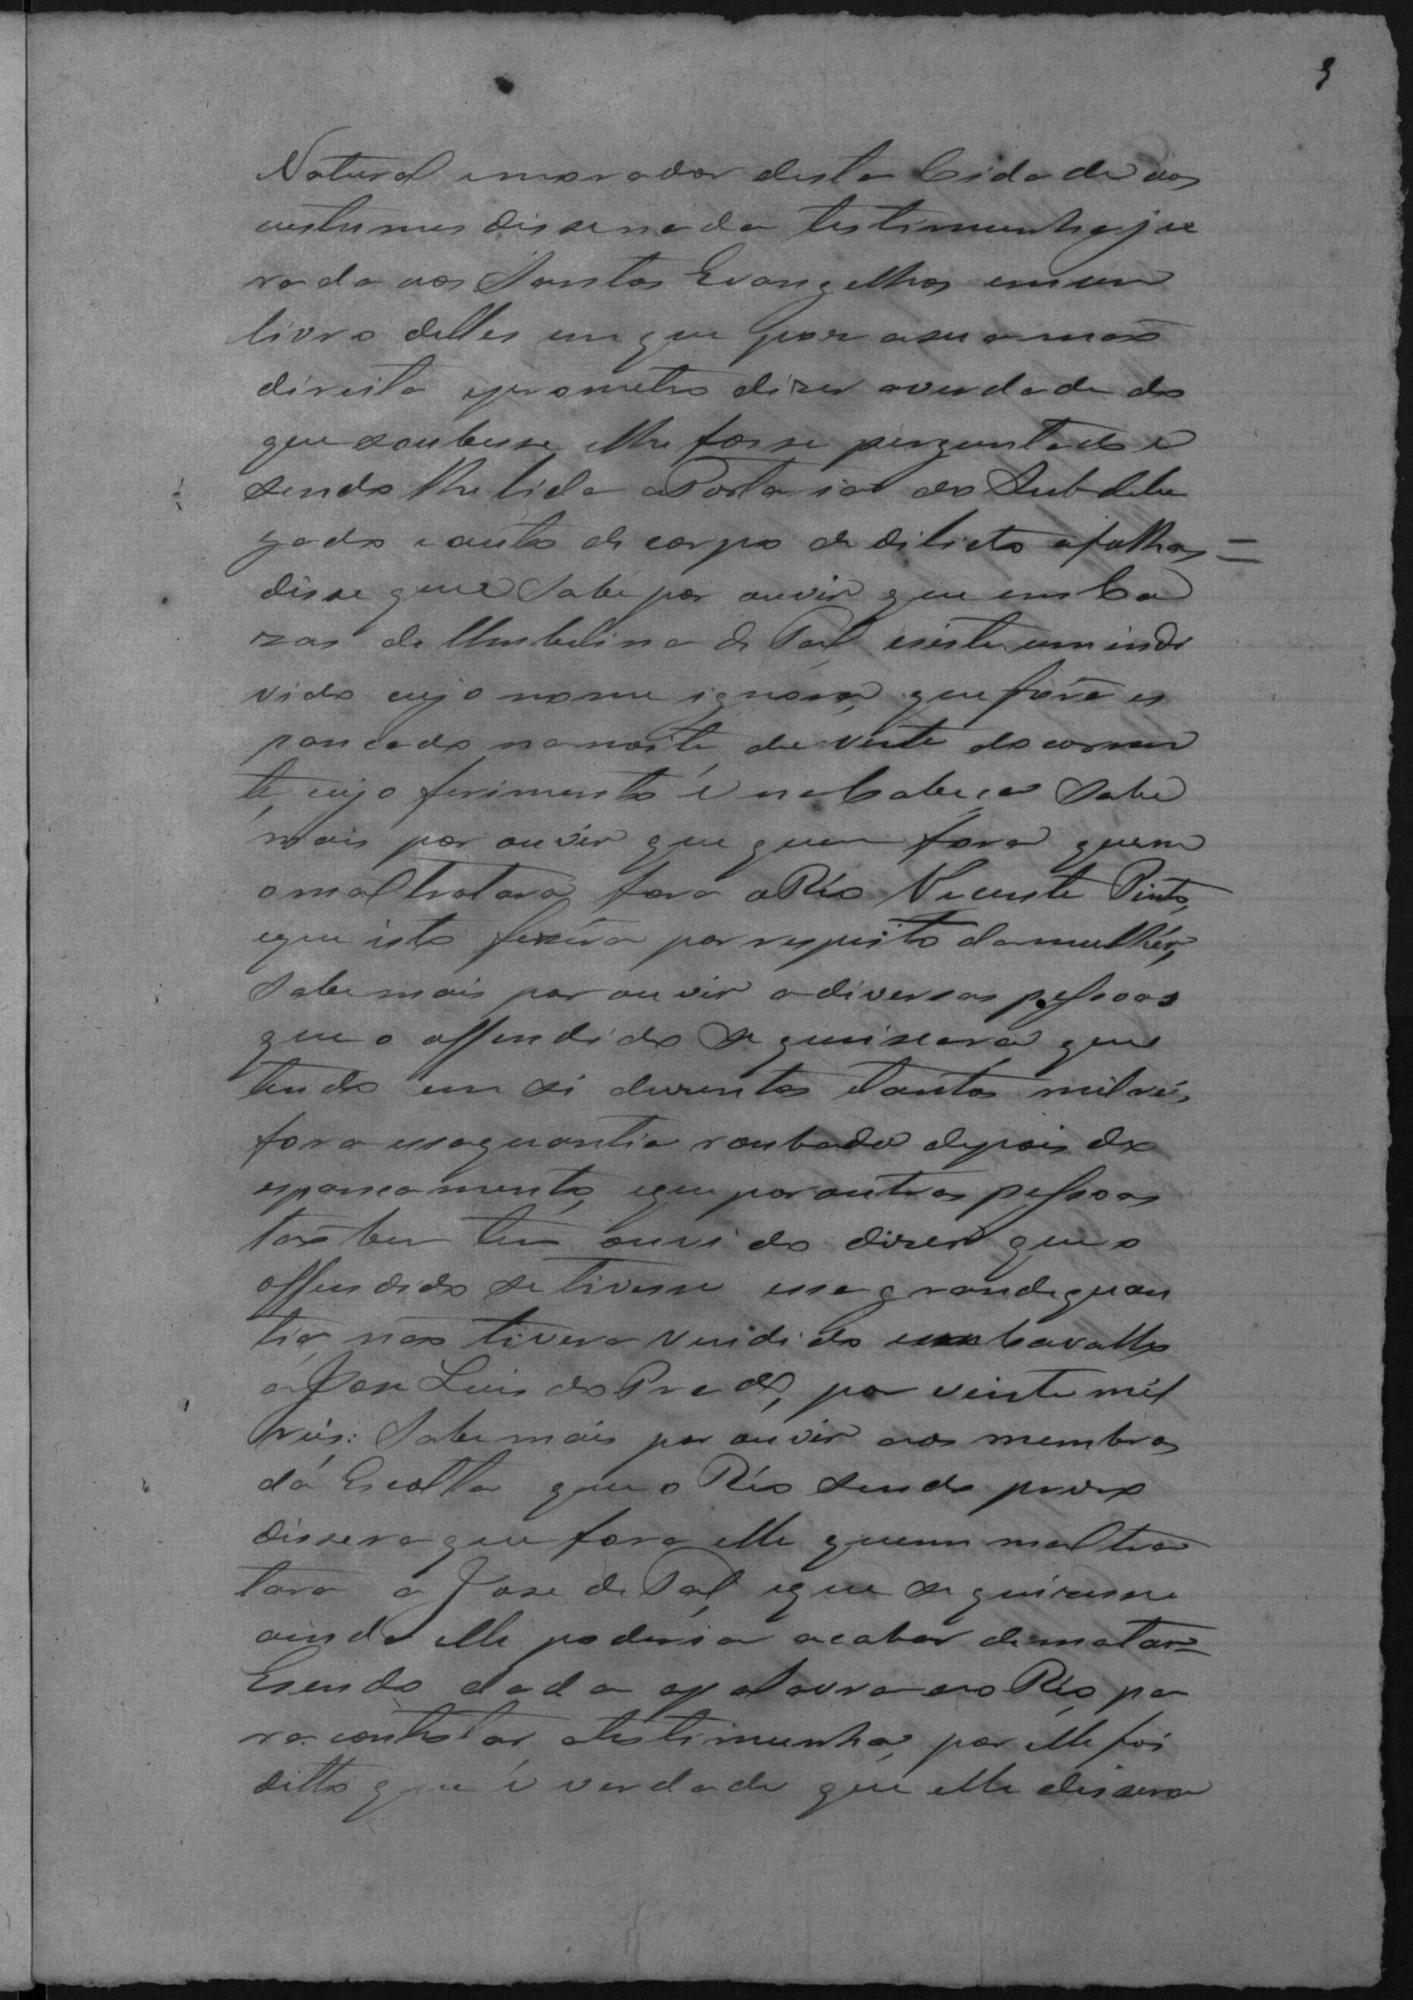 9
Natural emorador desta Cidade aos
costumes disse nada testimunha ju
rada aos Santos Evangelhos em um
livro delles em que por a sua mão
direita eprometeo dizer averdade do
que soubesse elhe fosse perguntado e
sendo lhe lida a Portaria do Subdele
gado e auto de corpo de dilicto afolhas =
disse que sabe por ouvir que em Ca
zas de Umbelina de Tal existe um indi
viduo cujo nome ignora, que fora es
pancado na noite de vinte do corren
te, cujo ferimento é na Cabeça sabe
mais por ouvir que quem fora quem
o maltratara fora o Réo Vicente Pinto,
eque isto fizéra por respeito da mulhér,
sabe mais por ouvir a diversas pessoas
que o offendido se queixara que
tendo em si duzentos e tantos mil réis,
fora essa quantia roubada depois do
espancamento, e que por outras pessoas
tãobem tem ouvido dizer que o
offendido se tivesse essa grande quan
tia não tivera vendido um Cavallo
a Jose Luis do Prado, por vinte mil
réis: Sabe mais por ouvir aos membros
da Escolta que o Réo sendo prezo
dissera que fora elle quem maltra
tara a Jose de Tal, e que se quizesse
ainda elle poderia acabar de matar =
E sendo dada a palavra ao Réo pa
ra contestar a testimunha, por elle foi
ditto que é verdade que elle dissera